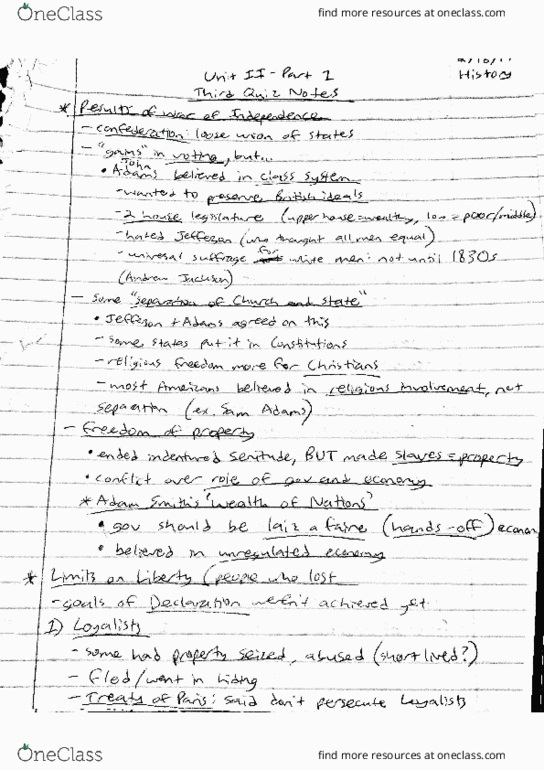 OneClass
find more resources at oneclass.com
Unit II - Part 2
History
Third Quiz Notes
* Results of war of Independence
- confederation: loose union of states
- "gains" in voting, but...
• John Adams believed in class system
- wanted to preserve British ideals
- 2 house legislature (upper house = wealthy, low = poor/middle)
- hated Jefferson (who thought all men equal)
- universal suffrage for white men: not until 1830s
(Andrew Jackson)
- Some "separation of Church and state"
• Jefferson + Adams agreed on this
- some states put it in Constitutions
- religious freedom more for Christians
- most Americans believed in religious involvement, not
separation (ex. Sam Adams)
- Freedom of property
• ended indentured servitude, BUT made slaves = property
• conflict over role of gov and economy
* Adam Smith's "Wealth of Nations"
• gov should be laiz a faire (hands-off) econom
• believed in unregulated economy
* Limits on Liberty (people who lost
- goals of Declaration weren't achieved yet
1) Loyalists
- some had property seized, abused (short lived?)
- fled/went in hiding
- Treaty of Paris: said don't persecute Loyalists
OneClass
find more resources at oneclass.com